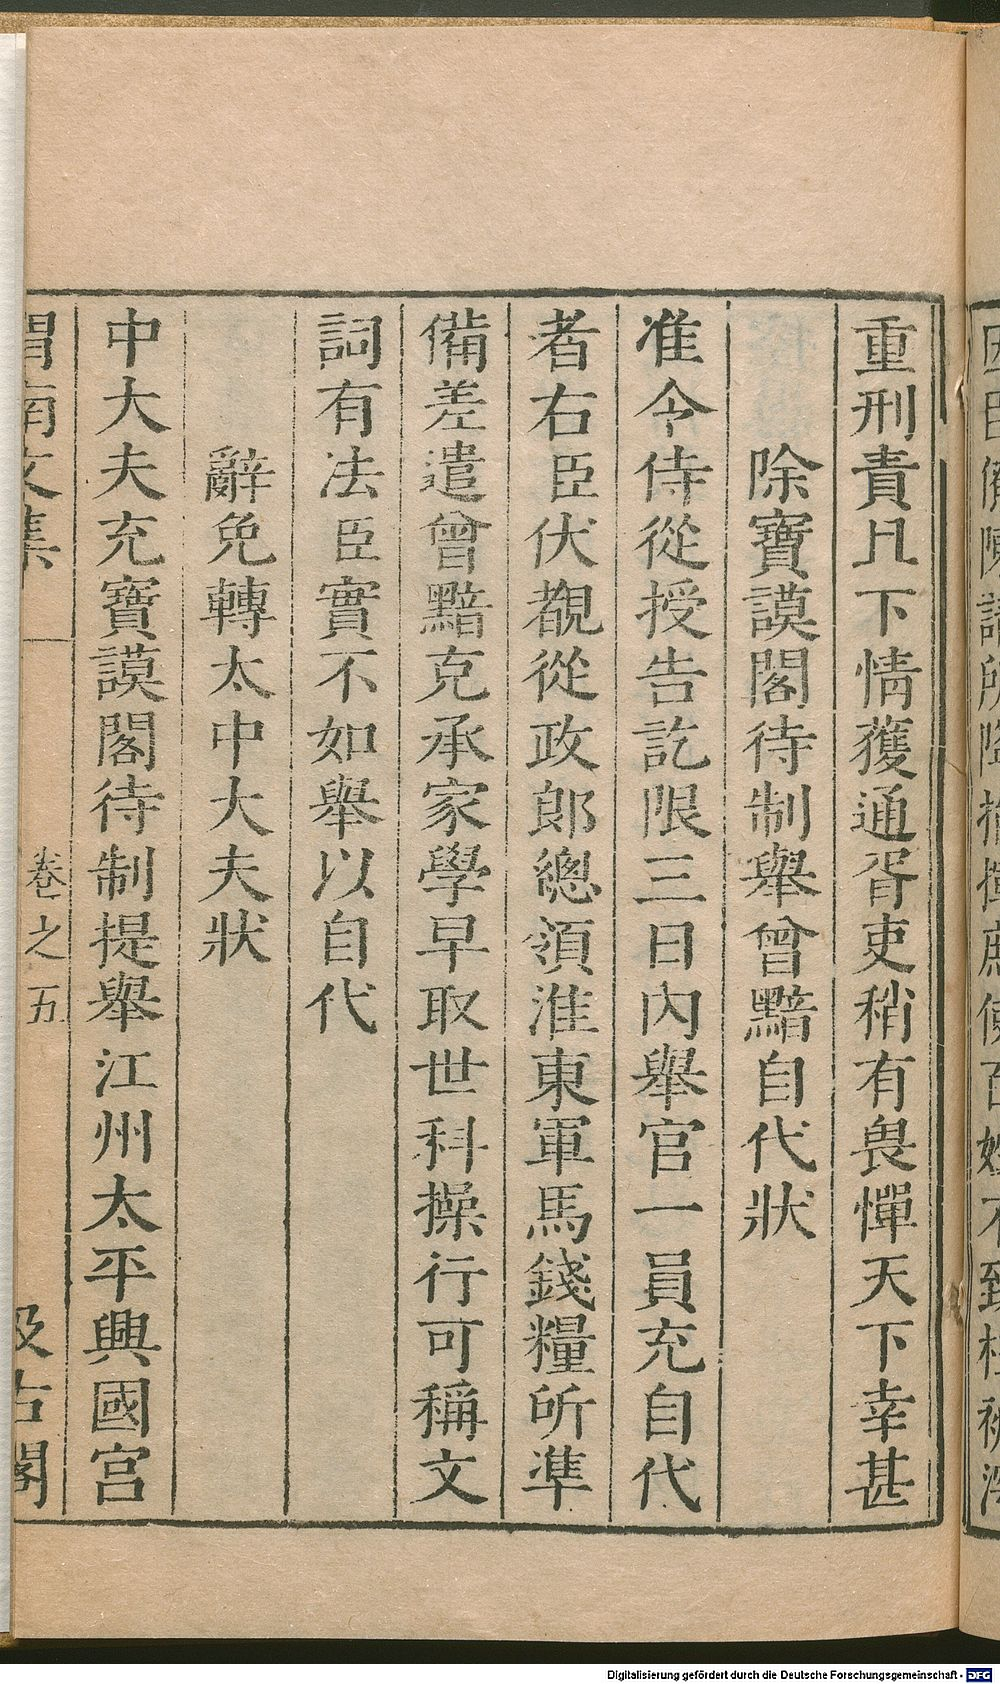 重刑責且下情獲通胥吏稍有畏憚天下幸甚
除寶謨閣待制舉曾黯自代狀
准令侍從授告訖限三日內舉官一員充自代
者右臣伏覩從政郎總領淮東軍馬錢糧所準
備差遣曾黯克承家學早取世科操行可稱文
詞有法臣實不如舉以自代
辭免轉太中大夫狀
中大夫充寶謨閣待制提舉江州太平興國宮
渭南文集 卷之五 汲古閣
Digitalisierung gefördert durch die Deutsche Forschungsgemeinschaft - DFG